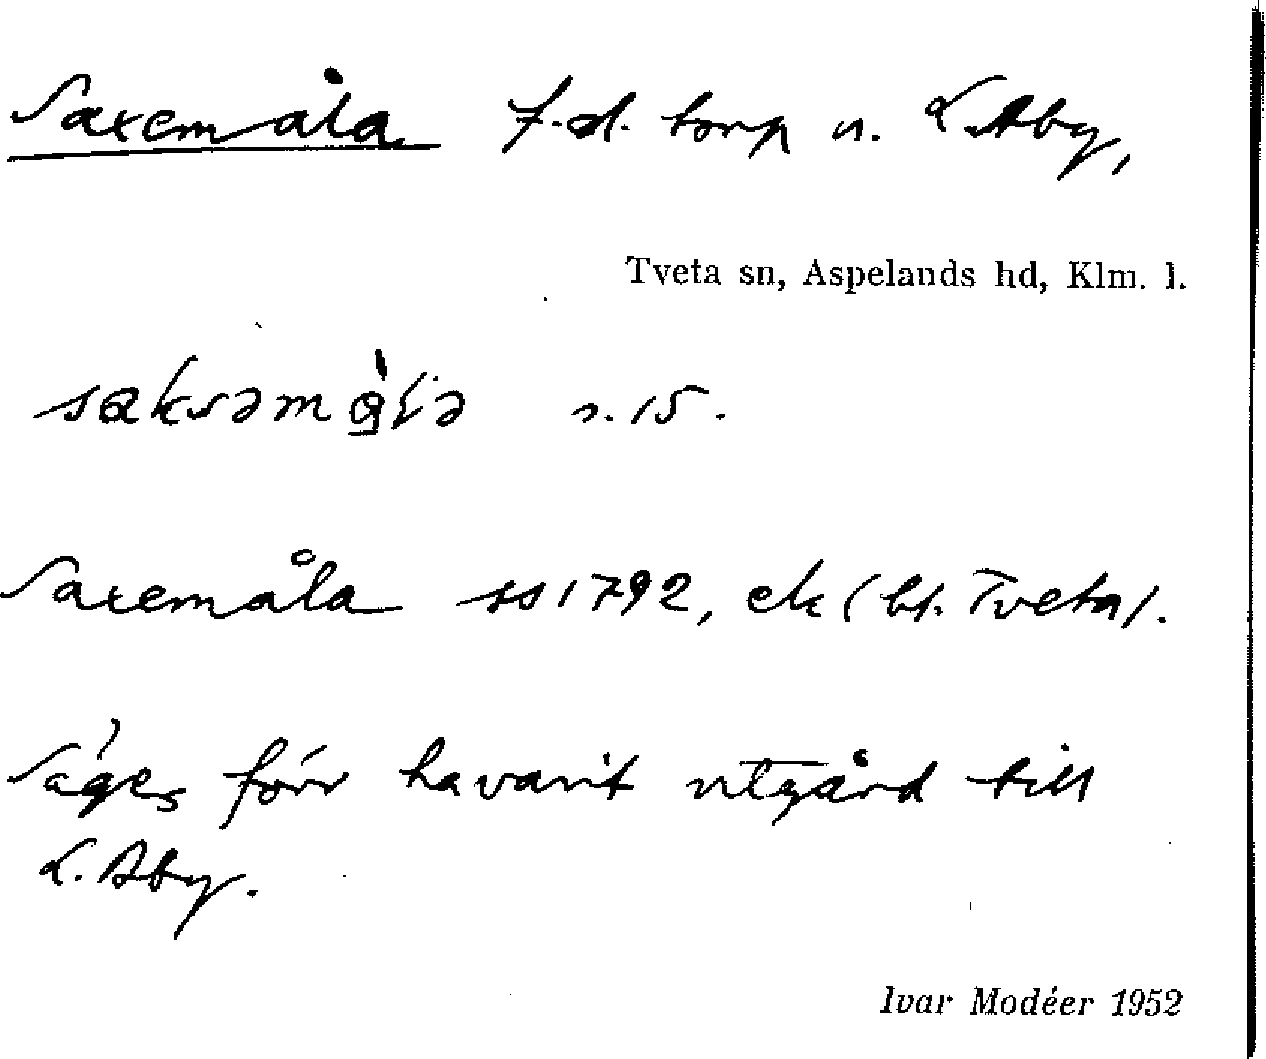 Saxemåla f.d. torp u. L. Åby,
Tveta sn, Aspelands hd, Klm. l.
s. 15.
Saxemåla ss 1792, ek (bf. Tveta).
Säges förr ha varit utgård till
L. Åby.
Ivar Modéer 1952